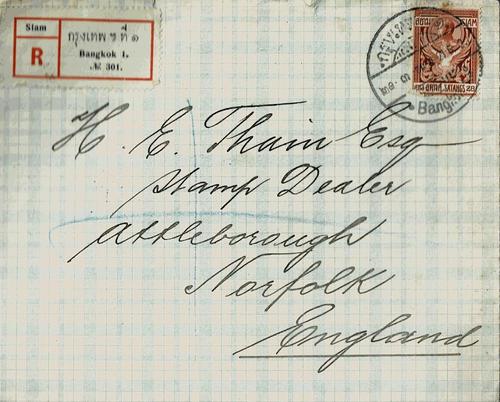 Siam
R
กรุงเทพฯ ที่ ๑
Bangkok 1.
№ 301.
SIAM
28
SATANGS
28
Bang
H. E. Thain Esq
Stamp Dealer
Attleborough
Norfolk
England